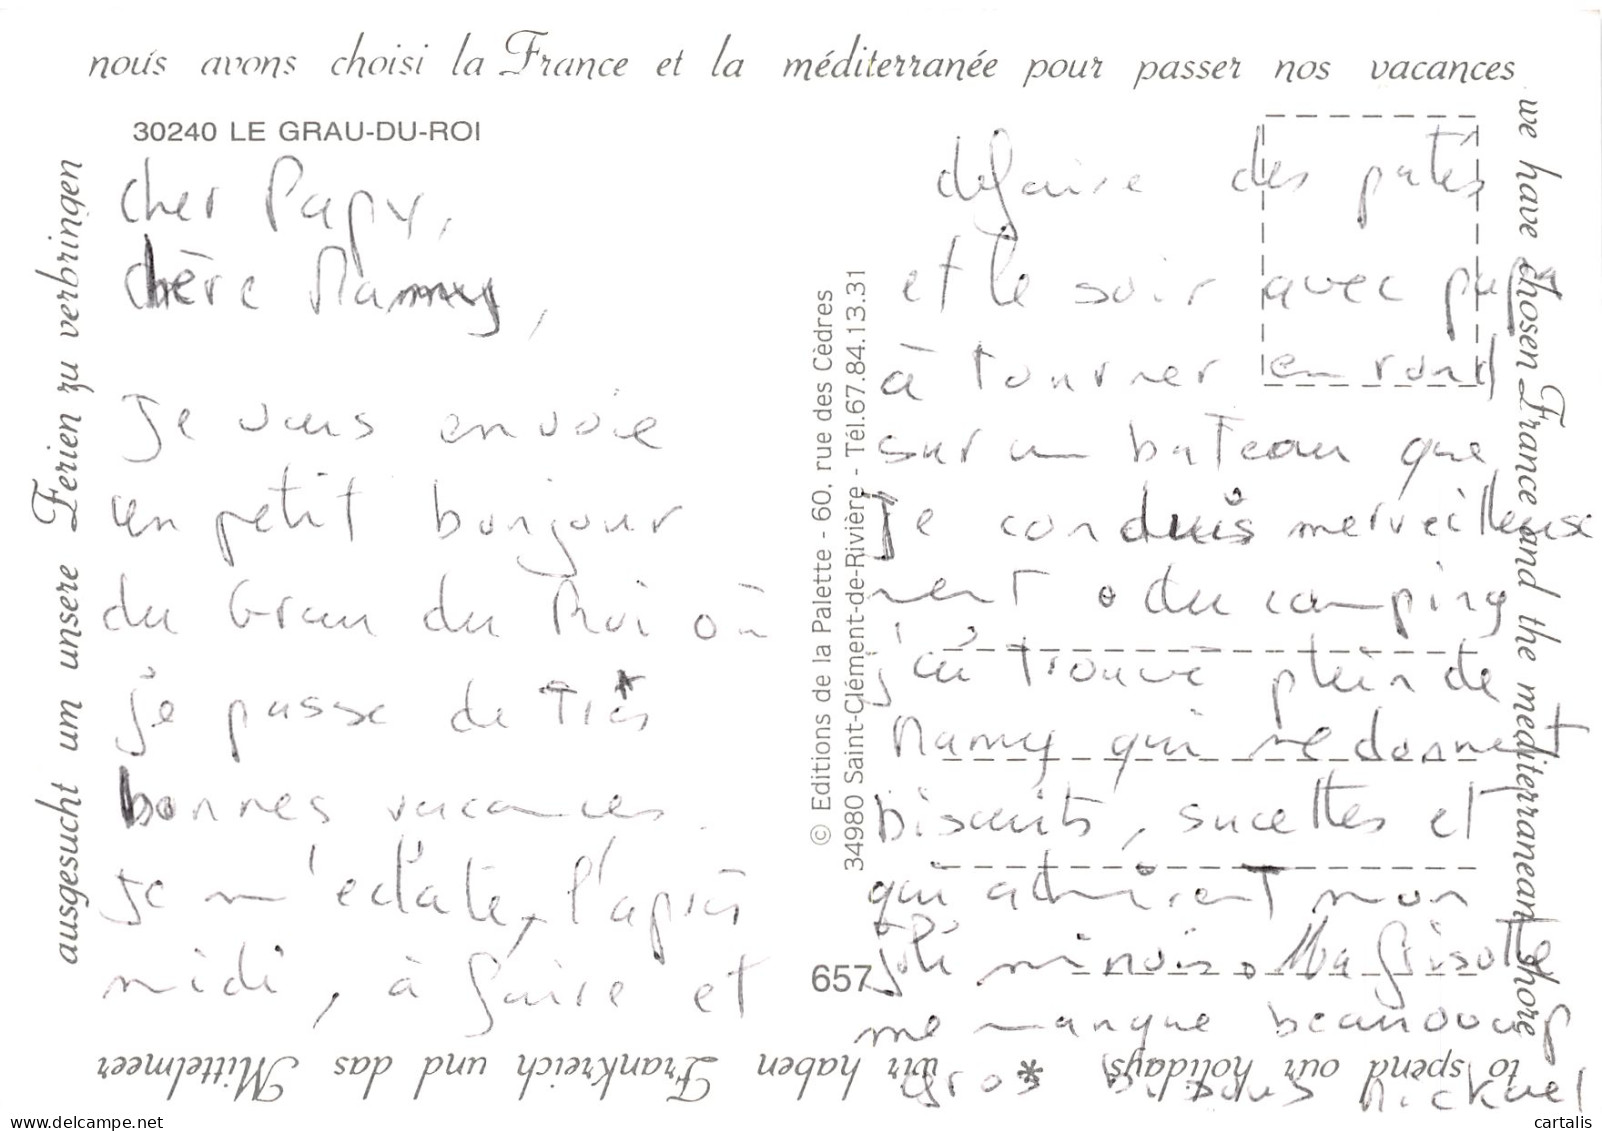 nous avons choisi la France et la méditerranée pour passer nos vacances
we have chosen France and the mediterranean shore
to spend our holidays * wir haben Frankreich und das Mittelmeer
ausgesucht um unsere Ferien zu verbringen
30240 LE GRAU-DU-ROI
Cher Papy,
Chère Mamy,
Je vous envoie
un petit bonjour
du Grau du Roi où
je passe de très
bonnes vacances.
Je m'eclate, l'après
midi, à faire et
© Editions de la Palette - 60, rue des Cèdres
34980 Saint-Clément-de-Rivière - Tél.67.84.13.31
657
defaire des patés
et le soir avec papy
à tourner en rond
sur un bateau que
Je conduis merveilleuse
ment. du camping
j'ai trouvé plein de
Mamy qui me donnent
biscuits, sucettes et
qui admirent mon
joli minois. Ma
me manque beaucoup
Gros bisous Mickael
cartalis.com